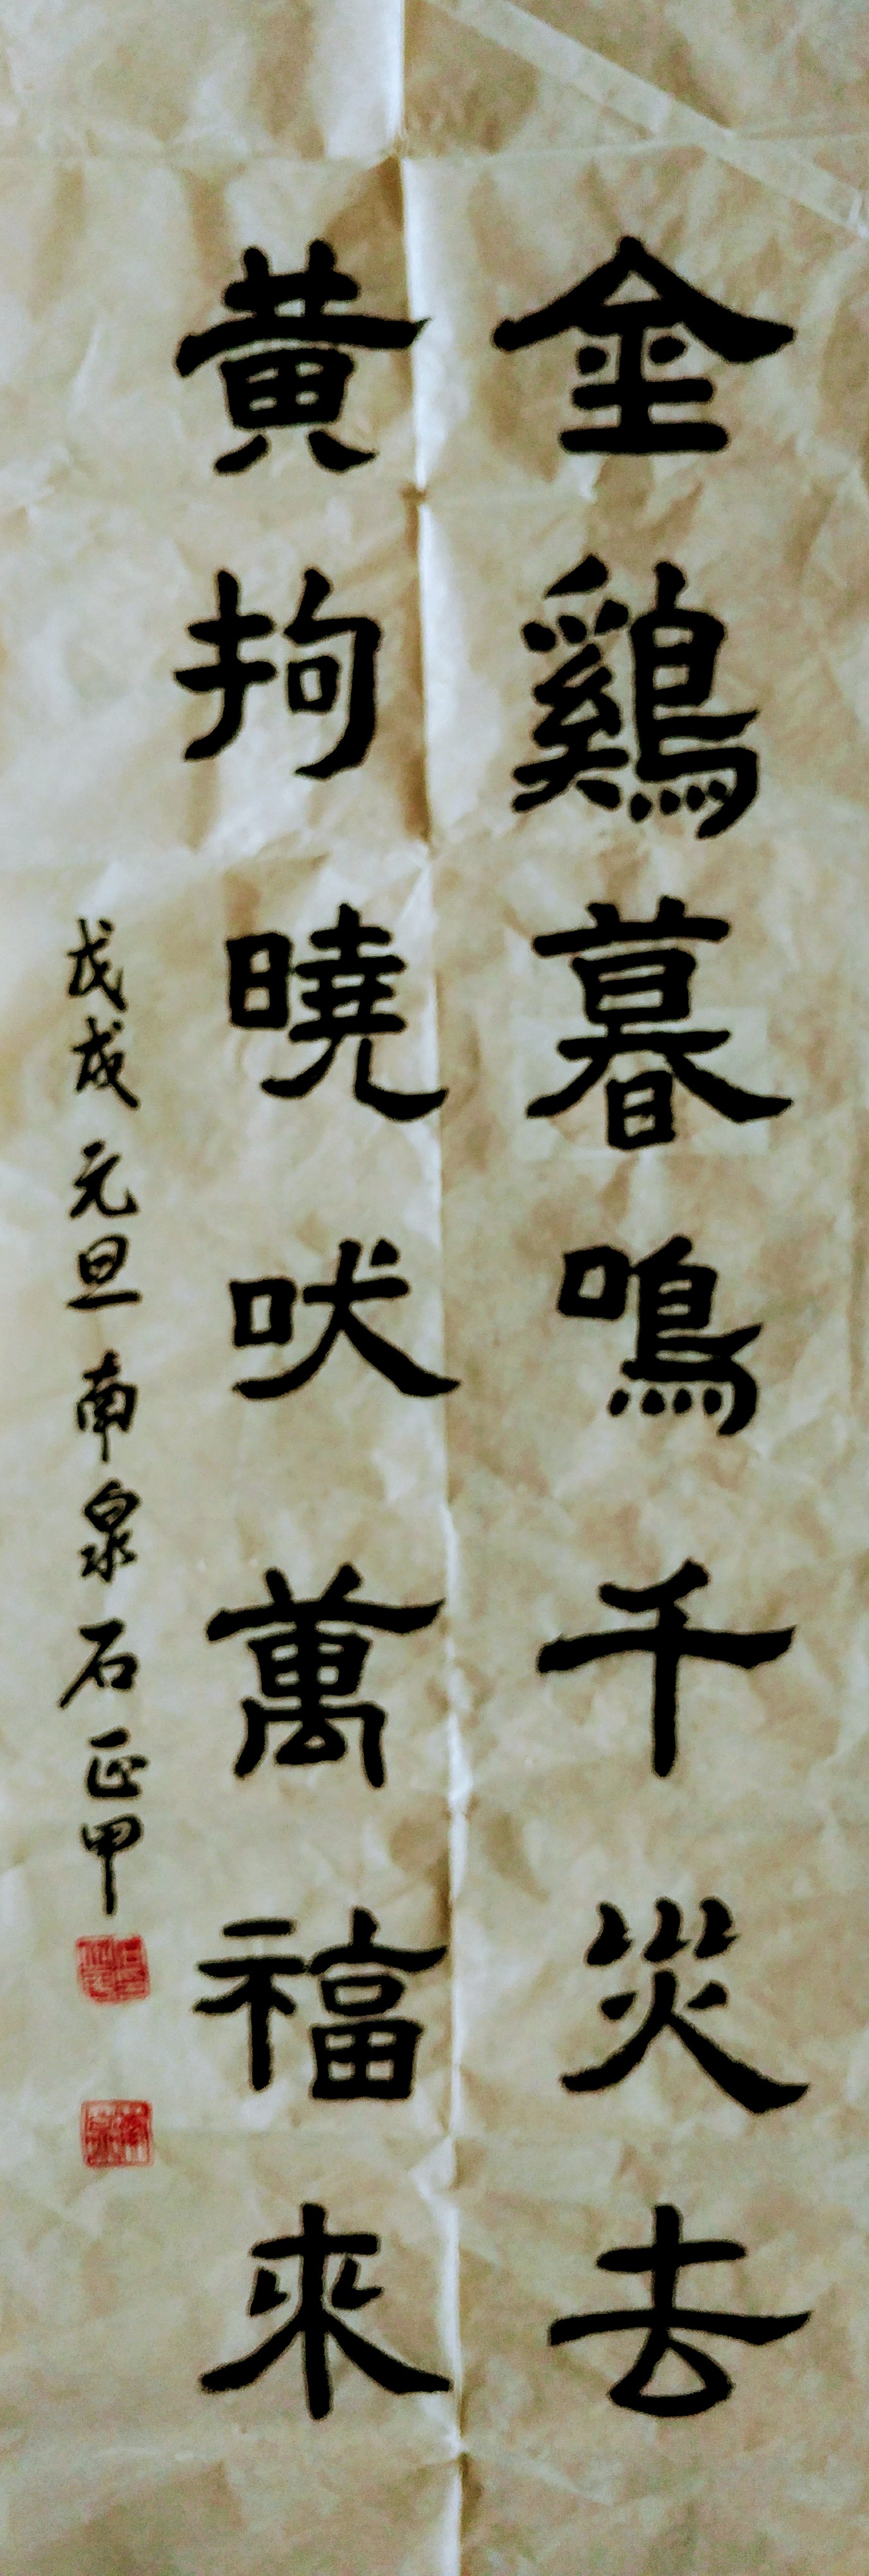 金鷄暮鳴千災去
黃拘曉吠萬福來
戊戌元旦南泉石正甲